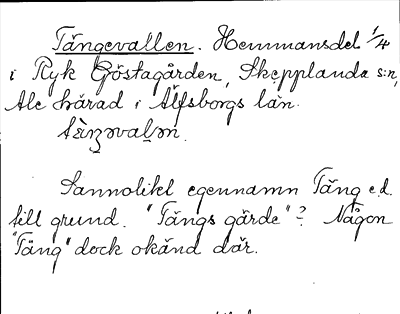 Tångevallen. Hemmansdel 1/4
i Ryk Göstagården, Skepplanda s:n,
Ale härad i Älfsborgs län.

Sannolikt egennamn Tång e.d.
till grund. "Tångs gärde"? Någon
"Tång" dock okänd där.